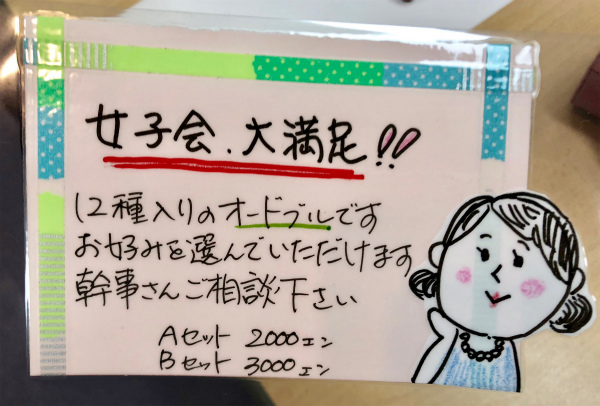 女子会.大満足!!
12種入りのオードブルです
お好みを選んでいただけます
幹事さんご相談下さい
Aセット 2000エン
Bセット 3000エン